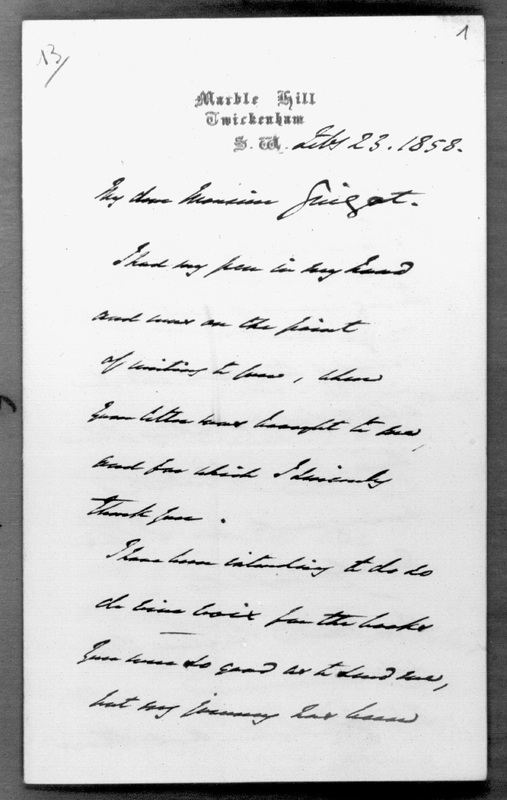 13
1
Marble Hill
Twickenham
S. W. Feby 23. 1858.
My dear Monsieur Guizot.
I had my pen in my hand
and was on the point
of writing to you, when
your letter was brought to me,
and for which I sincerely
thank you.
I have been intending to do so
de vive voix for the books
You were so good as to send me,
but my journey has been